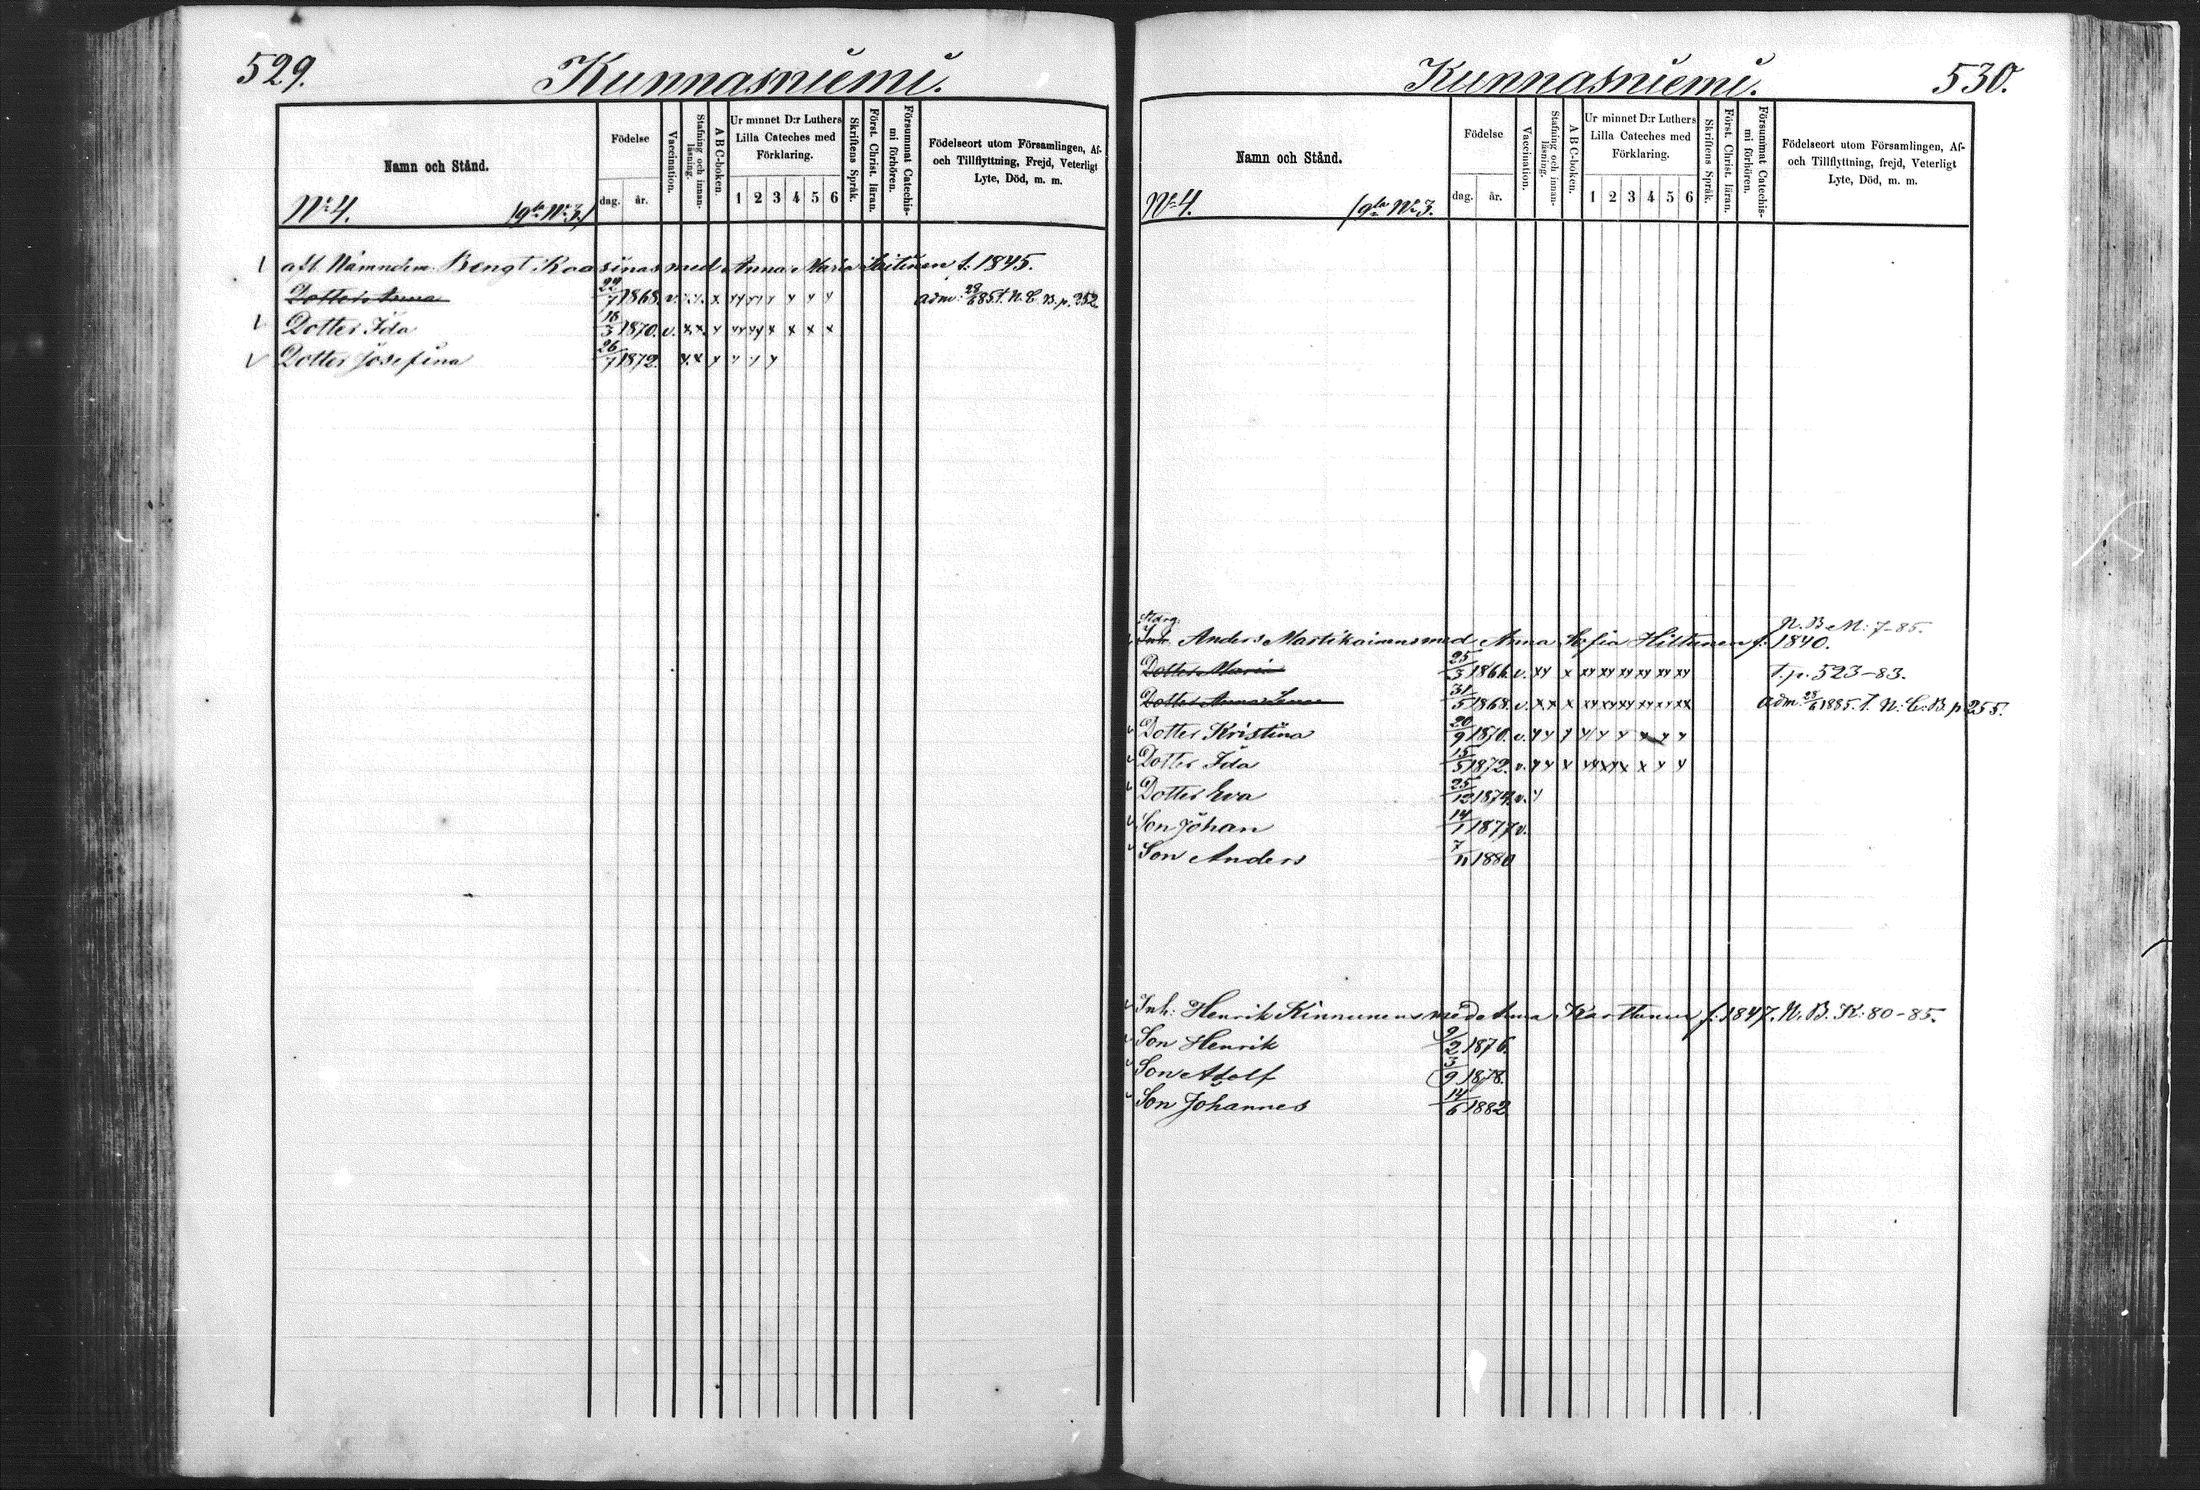 529.
Kunnasniemi.
Namn och Stånd.
Födelse
dag. år.
Vaccination.
Stafning och innanläsning.
A B C-boken.
Ur minnet D:r Luthers Lilla Cateches med Förklaring.
1 2 3 4 5 6
Skriftens Språk.
Först. Christ. läran.
Försummat Catechismi förhören.
Födelseort utom Församlingen, Af- och Tillflyttning, Frejd, Veterligt Lyte, Död, m. m.
No 4. /gla No 3./
afl. Nämndem. Bengt Koasinas med Anna Maria f. 1845.
Dotter Anna 22/7 1868. v. x. x. x xx xx x x x x adm. 28/6 85 t. N. C. B. p. 252
Dotter Ida 18/3 1870. v. x x. x xx xx x x x x
Dotter Josefina 26/7 1872. x. x x x x x
530.
Kunnasniemi.
Namn och Stånd.
Födelse
dag. år.
Vaccination.
Stafning och innanläsning.
A B C-boken.
Ur minnet D:r Luthers Lilla Cateches med Förklaring.
1 2 3 4 5 6
Skriftens Språk.
Först. Christ. läran.
Försummat Catechismi förhören.
Födelseort utom Församlingen, Af- och Tillflyttning, frejd, Veterligt Lyte, Död, m. m.
No 4. /gla No 3.
N. B. M: 7-85.
Inh. Anders Martikainens med Anna Sofia Hiltunen f. 1840.
Dotter Maria 25/3 1866. v. xx x xx xx xx xx xx xx T. p. 523-83.
Dotter Anna Lena 31/5 1868. v. x x x xx xx xx xx xx xx adm. 28/6 1885. t. N: C: B. p 255.
Dotter Kristina 20/9 1870. v. x x x x x x x x x
Dotter Ida 15/5 1872. v. x x x xx xx x x x x
Dotter Eva 25/12 1874. v. x
Son Johan 14/1 1877 v.
Son Anders 7/11 1880
Inh: Henrik Kinnunens med Anna Karttunen f. 1847. N. B. K: 80-85.
Son Henrik 9/2 1876.
Son Adolf 3/9 1878.
Son Johannes 14/6 1882